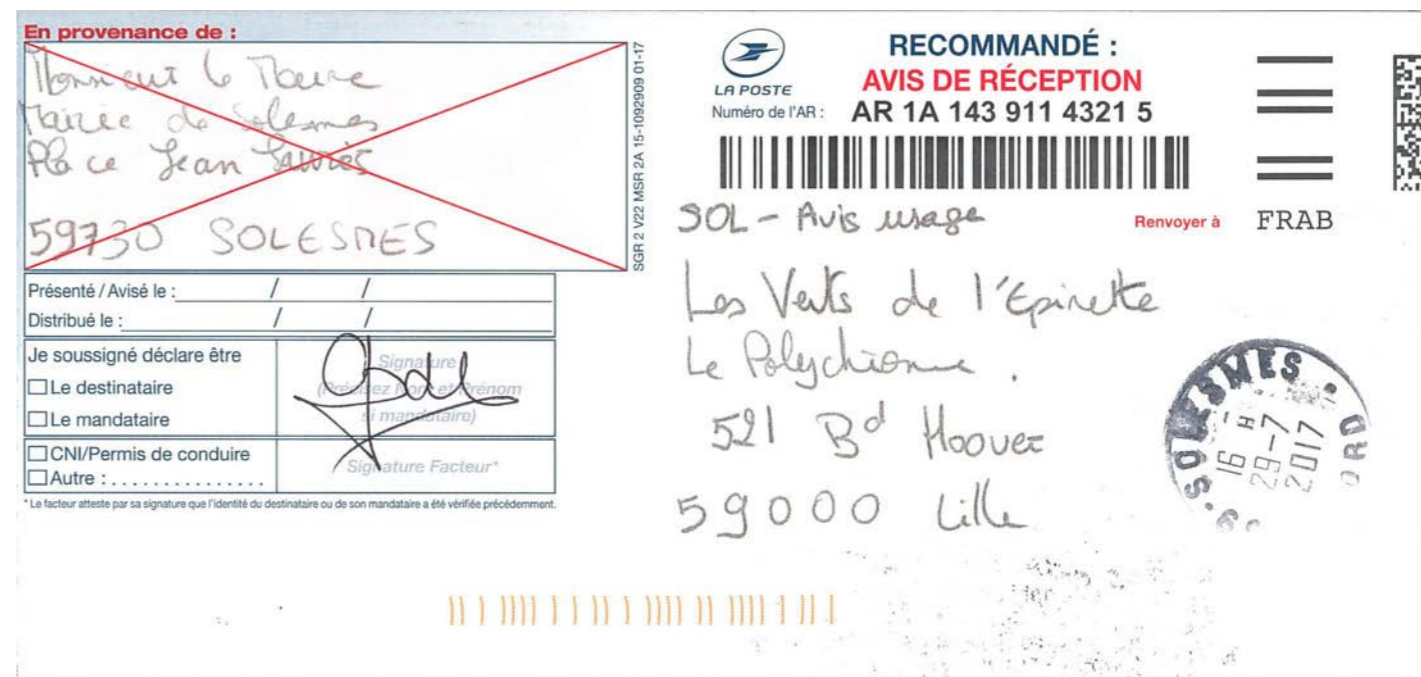 En provenance de :
Monsieur le Maire
Mairie de Solesmes
Place Jean Jaurès
59730 SOLESMES
SGR 2 V22 MSR 2A 15-1092909 01-17
Présenté / Avisé le : / /
Distribué le : / /
Je soussigné déclare être
☐ Le destinataire
☐ Le mandataire
Signature
(Précisez Nom et Prénom
si mandataire)
☐ CNI/Permis de conduire
☐ Autre : . . . . . . . . . . . . . . .
Signature Facteur*
* Le facteur atteste par sa signature que l'identité du destinataire ou de son mandataire a été vérifiée précédemment.
LA POSTE
RECOMMANDÉ :
AVIS DE RÉCEPTION
Numéro de l'AR : AR 1A 143 911 4321 5
Renvoyer à FRAB
SOL - Avis usage
Les Vents de l'Epinette
Le Polychrome.
521 Bd Hoover
59000 Lille
SOLESMES
16 H
29-7
2017
ORD